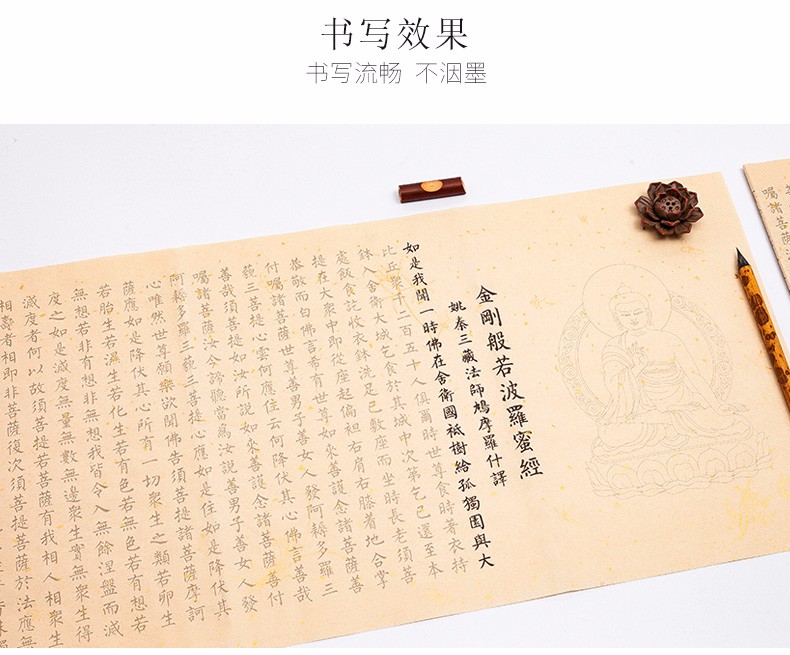 书写效果
书写流畅 不洇墨
金剛般若波羅蜜經
姚秦三藏法師鳩摩羅什譯
如是我聞一時佛在舍衛國祇樹給孤獨園與大
比丘眾千二百五十人俱爾時世尊食時著衣持
鉢入舍衛大城乞食於其城中次第乞已還至本
處飯食訖收衣鉢洗足已敷座而坐時長老須菩
提在大眾中即從座起偏袒右肩右膝着地合掌
恭敬而白佛言希有世尊如來善護念諸菩薩善
付囑諸菩薩世尊善男子善女人發阿耨多羅三
藐三菩提心雲何應住云何降伏其心佛言善哉
善哉須菩提如汝所說如來善護念諸菩薩善付
囑諸菩薩汝今諦聽當為汝說善男子善女人發
阿耨多羅三藐三菩提心應如是住如是降伏其
心唯然世尊願樂欲聞佛告須菩提諸菩薩摩訶
薩應如是降伏其心所有一切眾生之類若卵生
若胎生若濕生若化生若有色若無色若有想若
無想若非有想非無想我皆令入無餘涅槃而滅
度之如是滅度無量無數無邊眾生實無眾生得
滅度者何以故須菩提若菩薩有我相人相眾生
相壽者相即非菩薩復次須菩提菩薩於法應無
囑諸菩薩